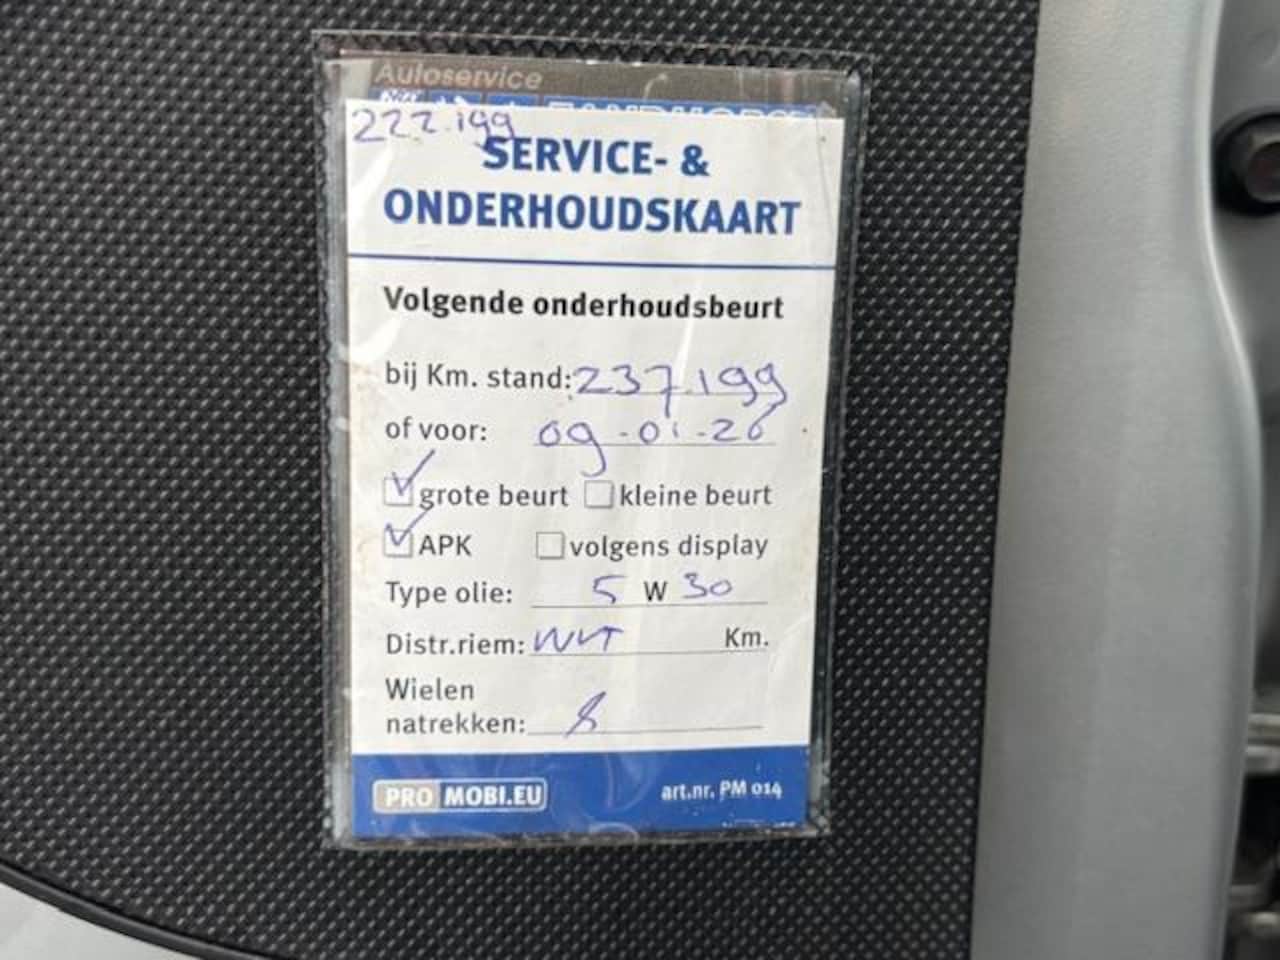 Autoservice
222.199
SERVICE- &
ONDERHOUDSKAART
Volgende onderhoudsbeurt
bij Km. stand: 237.199
of voor: 09-01-26
grote beurt kleine beurt
APK volgens display
Type olie: 5 W 30
Distr.riem: NVT Km.
Wielen
natrekken:
PRO MOBI.EU art.nr. PM 014